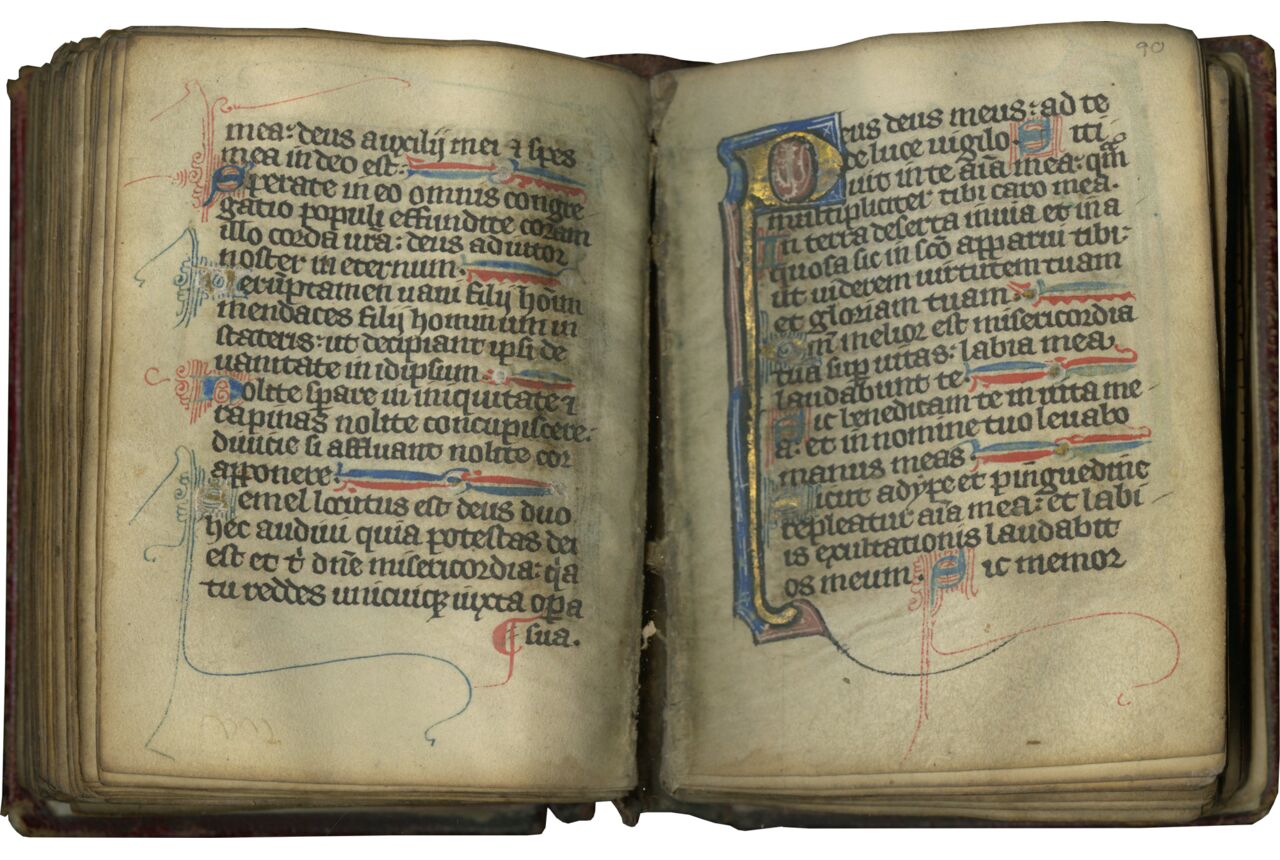 mea: deus auxilij mei ⁊ spes
mea in deo est:
Sperate in eo omnis congre
gatio populi effundite coram
illo corda ura: deus adiutor
noster in eternum.
Uerūptamen uani filij homi
mendaces filij hominum in
stateris: ut decipiant ipsi de
uanitate in idipsum.
Nolite spare in iniquitate ⁊
rapinas nolite concupiscere:
diuicie si affluant nolite cor
apponere.
Semel locutus est deus duo
hec audiui quia potestas dei
est et t' dn̄e misericordia: qia
tu reddes unicuiqꝫ iuxta opa
sua.
90
Deus deus meus: ad te
de luce uigilo. Siti
uit in te aīa mea: qm̄
multipliciter tibi caro mea.
In terra deserta inuia et ina
quosa sic in sco apparui tibi
ut uiderem uirtutem tuam
et gloriam tuam.
Qm̄ melior est misericordia
tua sup uitas: labia mea
laudabunt te.
Sic benedicam te in uita me
a. et in nomine tuo leuabo
manus meas
Sicut adype et pinguedine
repleatur aīa mea: et labi
is exultationis laudabit
os meum. Sic memor